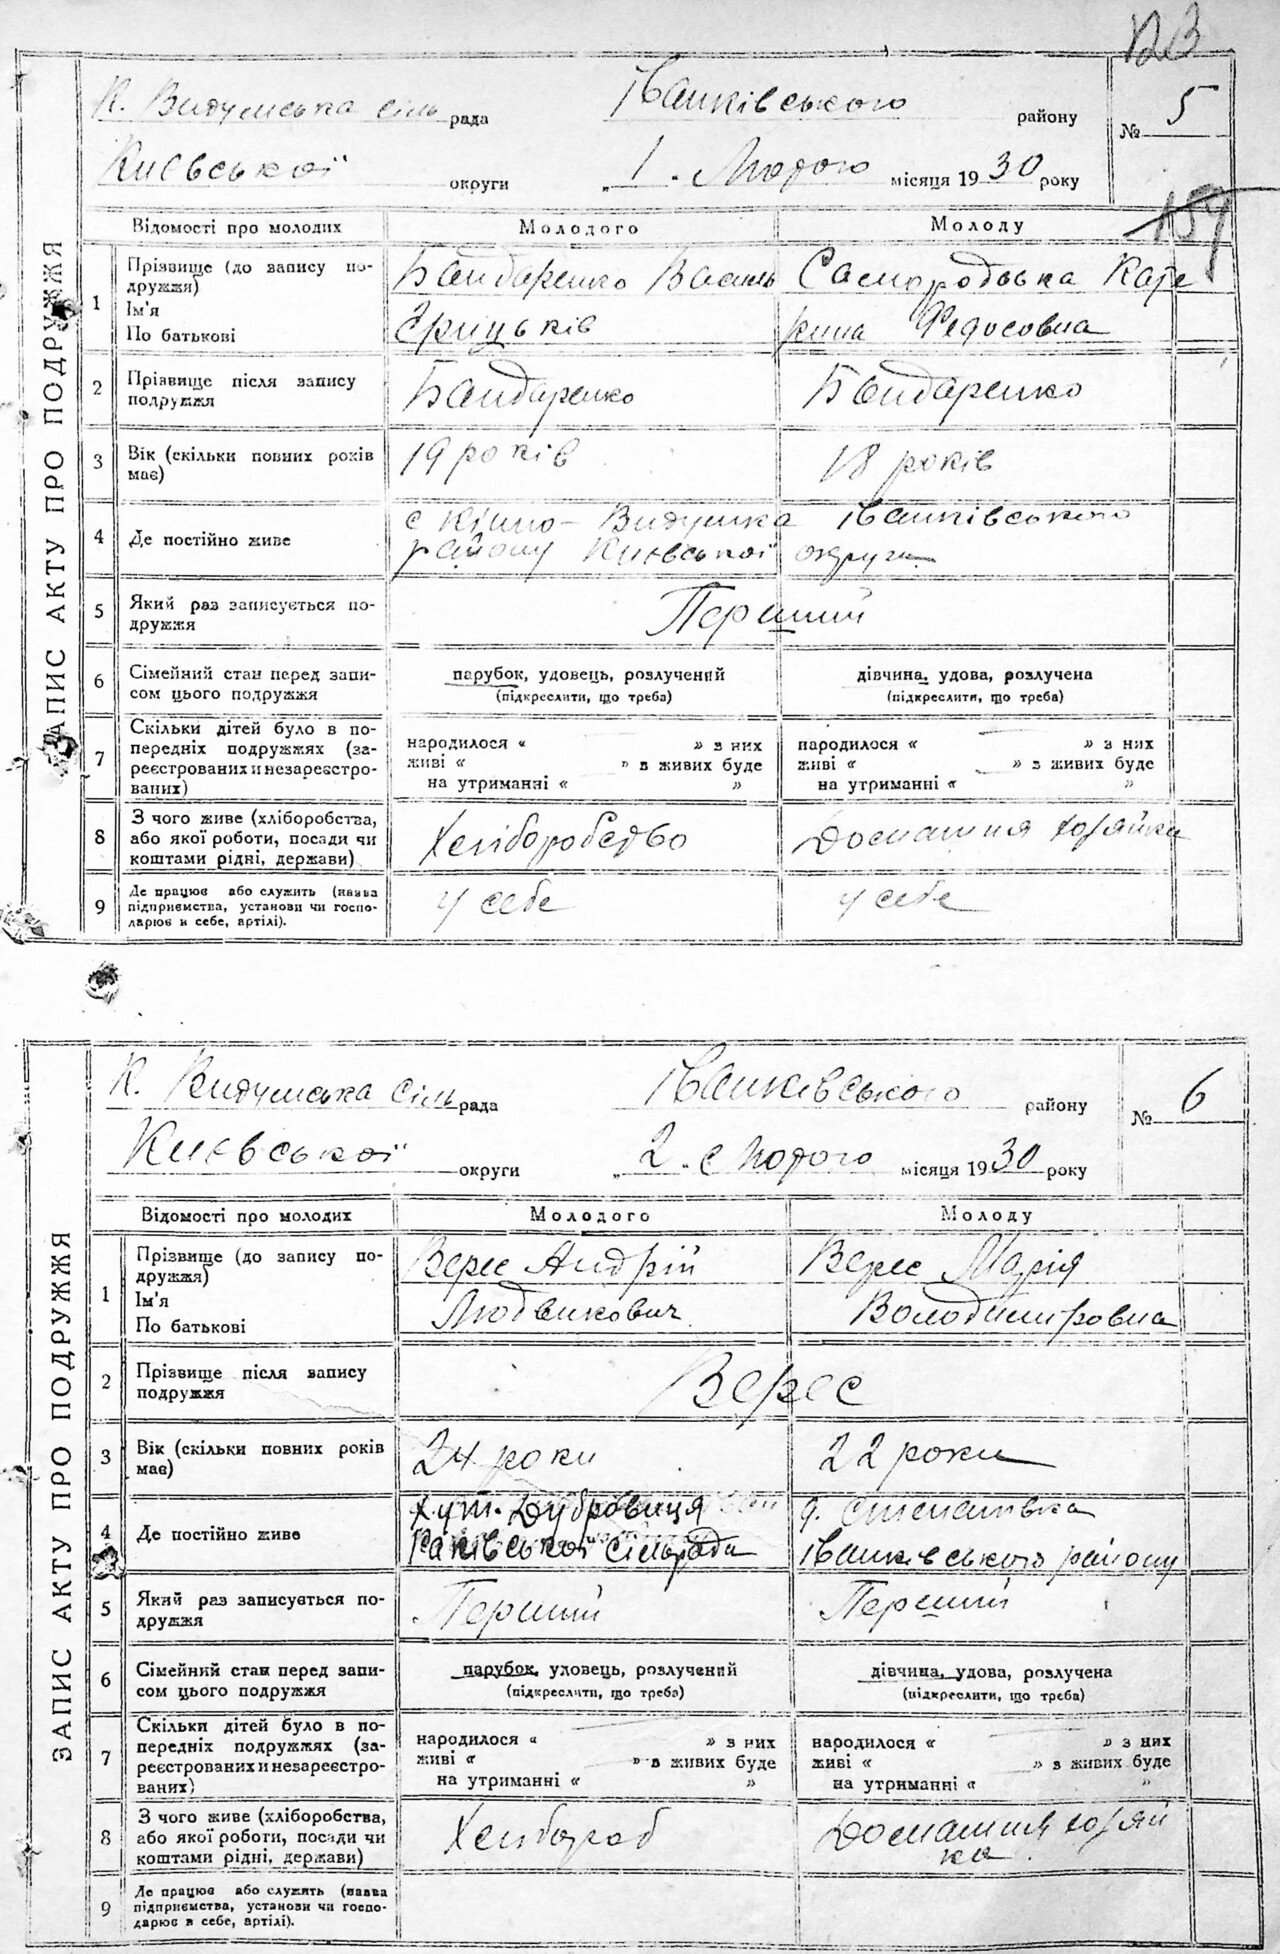 123
К. Видумська сіль рада Іванківського району № 5
Києвської округи „1„ Лютого місяця 1930 року
154
ЗАПИС АКТУ ПРО ПОДРУЖЖЯ
Відомості про молодих Молодого Молоду
1 Прізвище (до запису по-
дружжя)
Ім'я
По батькові
Бандаренко Василь
Грицьків
Самородська Кате
рина Федосовна
2 Прізвище після запису
подружжя
Бандаренко
Бандаренко
3 Вік (скільки повних років
має)
19 років
18 років
4 Де постійно живе
с Кінно-Видумка Іванківського
району Києвської округи
5 Який раз записується по-
дружжя
Перший
6 Сімейний стан перед запи-
сом цього подружжя
парубок, удовець, розлучений
(підкреслити, що треба)
дівчина, удова, розлучена
(підкреслити, що треба)
7 Скільки дітей було в по-
передніх подружжях (за-
реєстрованих и незареєстро-
ваних)
народилося « » з них
живі « » в живих буде
на утриманні « »
народилося « » з них
живі « » з живих буде
на утриманні « »
8 З чого живе (хліборобства,
або якої роботи, посади чи
коштами рідні, держави)
Хліборобство
Домашня хозяйка
9 Де працює або служить (назва
підприємства, установи чи госпо-
дарює в себе, артілі).
у себе
у себе
К. Видумська сіль рада Іванківського району № 6
Києвської округи „2„ Лютого місяця 1930 року
ЗАПИС АКТУ ПРО ПОДРУЖЖЯ
Відомості про молодих Молодого Молоду
1 Прізвище (до запису по-
дружжя)
Ім'я
По батькові
Верес Андрій
Людвикович
Верес Марія
Володимировна
2 Прізвище після запису
подружжя
Верес
3 Вік (скільки повних років
має)
24 роки
22 роки
4 Де постійно живе
Хут. Дубровиця
Раківської сільради
д. Степанівка
Іванківського району
5 Який раз записується по-
дружжя
Перший
Перший
6 Сімейний стан перед запи-
сом цього подружжя
парубок, удовець, розлучений
(підкреслити, що треба)
дівчина, удова, розлучена
(підкреслити, що треба)
7 Скільки дітей було в по-
передніх подружжях (за-
реєстрованих и незареєстро-
ваних)
народилося « » з них
живі « » в живих буде
на утриманні « »
народилося « » з них
живі « » з живих буде
на утриманні « »
8 З чого живе (хліборобства,
або якої роботи, посади чи
коштами рідні, держави)
Хлібороб
Домашня хозяй
ка
9 Де працює або служить (назва
підприємства, установи чи госпо-
дарює в себе, артілі).